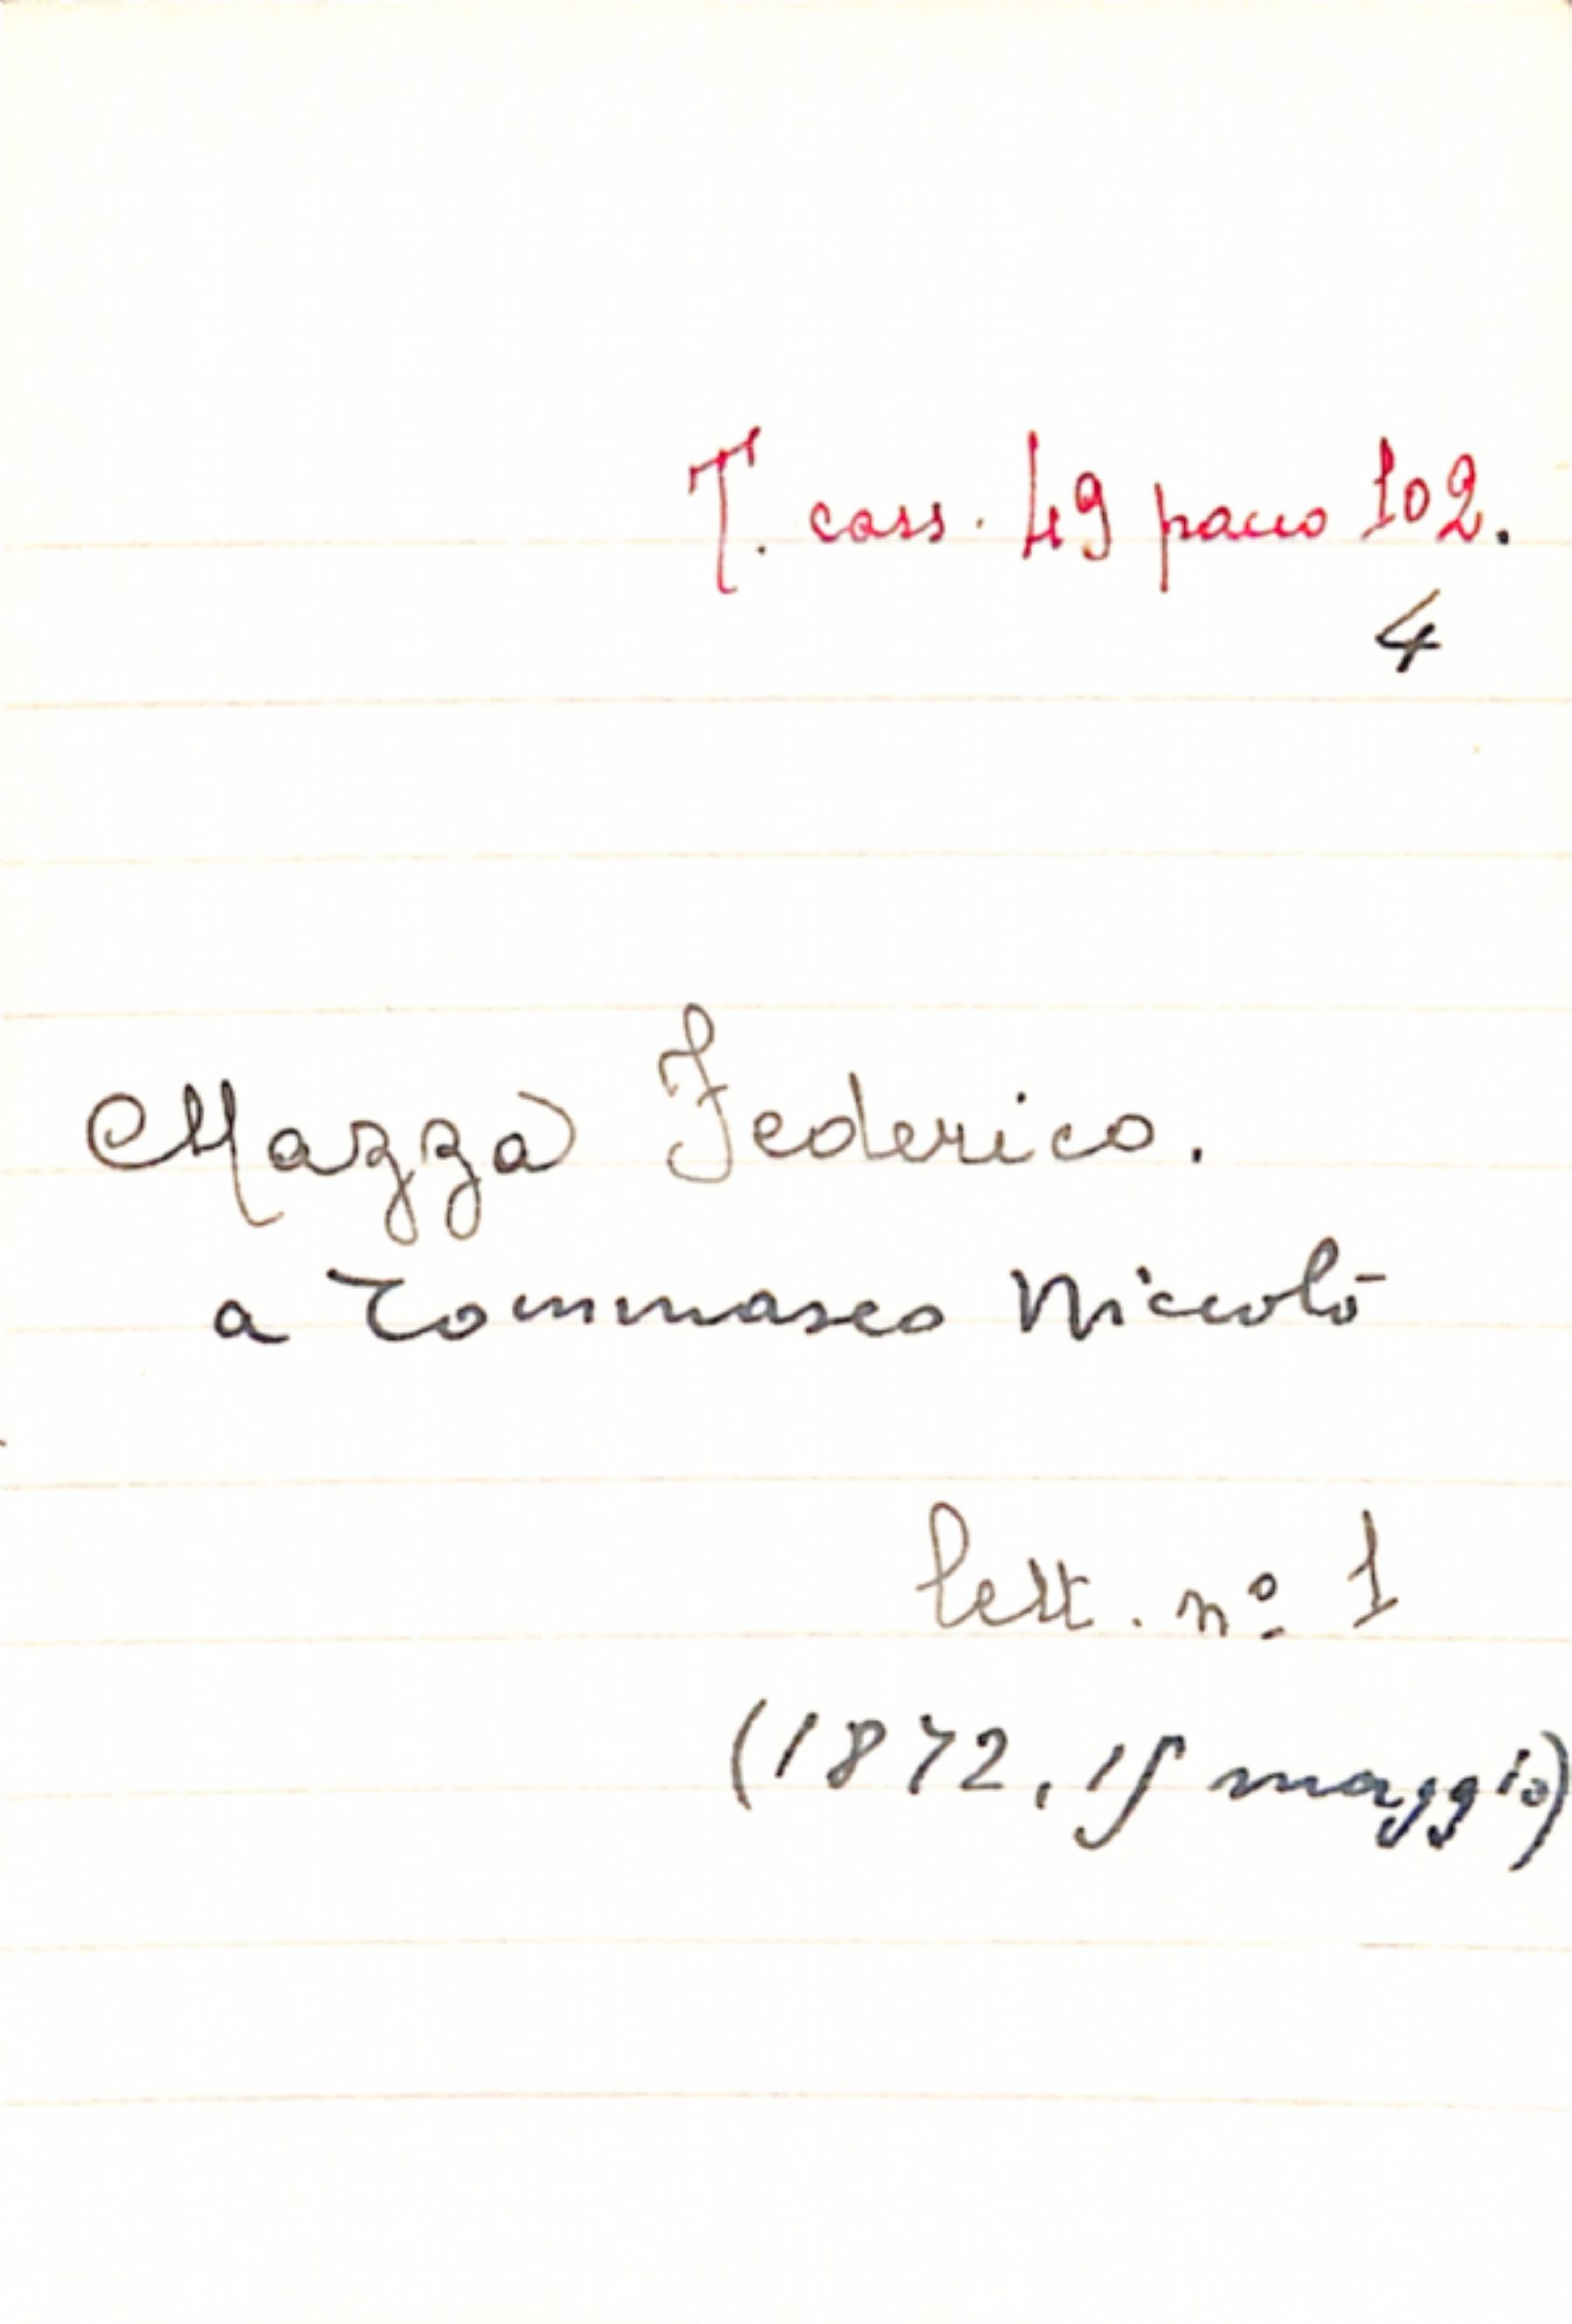 T. cass. 49 pacco 102.
4
Mazza Federico.
a Tommaseo Niccolò
lett. nº 1
(1872, 15 maggio)